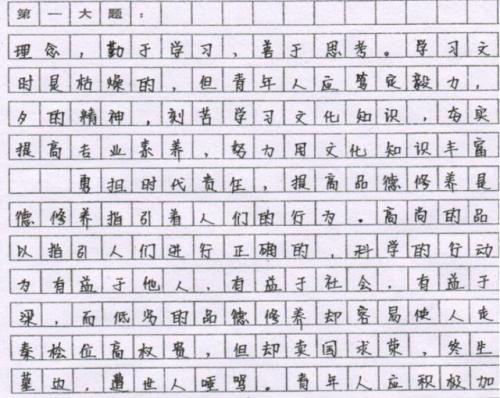 第一大题：
理念，勤于学习、善于思考。学习文
时是枯燥的，但青年人应笃定毅力，
夕的精神，刻苦学习文化知识，夯实
提高专业素养，努力用文化知识丰富
勇担时代责任，提高品德修养是
德修养指引着人们的行为。高尚的品
以指引人们进行正确的，科学的行动
为有益于他人，有益于社会，有益于
梁，而低劣的品德修养却容易使人走
秦桧位高权贵，但却卖国求荣，终生
墓边，遭世人唾骂。青年人应积极加